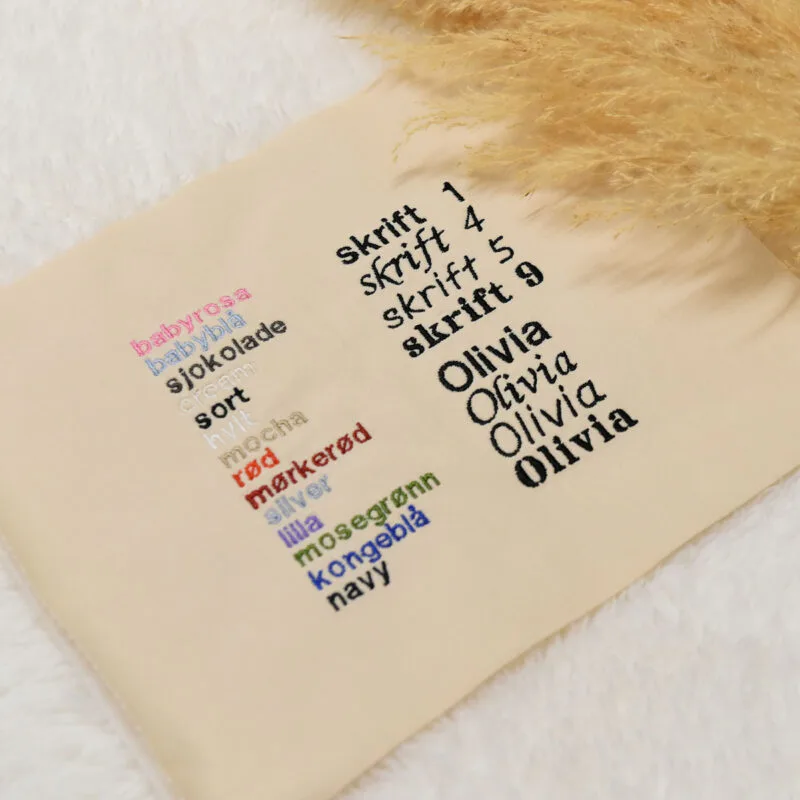 babyrosa
babyblå
sjokolade
cream
sort
hvit
mocha
rød
mørkerød
silver
lilla
mosegrønn
kongeblå
navy
skrift 1
skrift 4
skrift 5
skrift 9
Olivia
Olivia
Olivia
Olivia